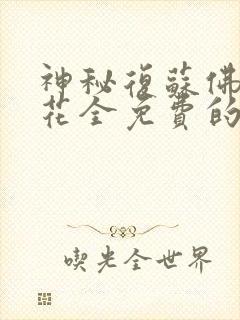 神秘復蘇佛
花全免費的
喫光全世界